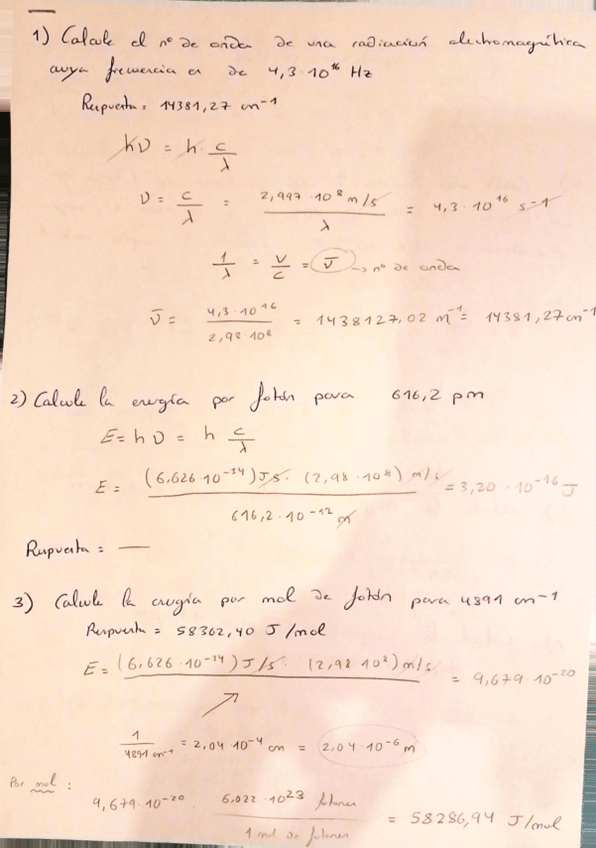 1) Calcule el nº de onda de una radiación electromagnética
cuya frecuencia es de 4,3·10¹⁶ Hz
Respuesta = 14381,27 cm⁻¹
hν = h· c/λ
ν = c/λ = 2,997·10⁸ m/s / λ = 4,3·10¹⁶ s⁻¹
1/λ = ν/c = ν̄ → nº de onda
ν̄ = 4,3·10¹⁶ / 2,98·10⁸ = 1438127,02 m⁻¹ = 14381,27 cm⁻¹
2) Calcule la energía por fotón para 616,2 pm
E = hν = h c/λ
E = (6,626·10⁻³⁴) J·s · (2,98·10⁸) m/s / 616,2·10⁻¹² m = 3,20·10⁻¹⁶ J
Respuesta = —
3) Calcule la energía por mol de fotón para 4891 cm⁻¹
Respuesta = 58362,40 J/mol
E = (6,626·10⁻³⁴) J/s · (2,98 10⁸) m/s = 9,679·10⁻²⁰
1/4891 cm⁻¹ = 2,04·10⁻⁴ cm = 2,04·10⁻⁶ m
Por mol :
9,679·10⁻²⁰ · 6,022·10²³ fotones / 1 mol de fotones = 58286,94 J/mol